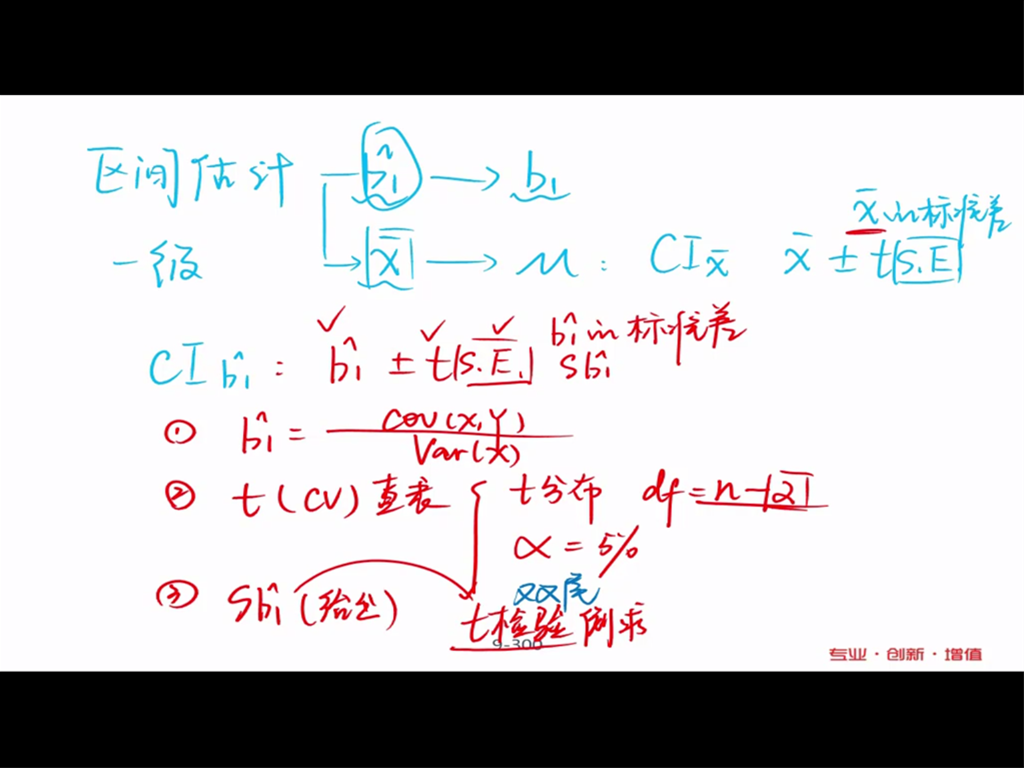 区间估计 — b̂₁ → b₁
x̄ 的标准差
一级 → x̄ → μ: CI x̄ x̄ ± t S.E.
b̂₁ 的标准差
CI b̂₁: b̂₁ ± t S.E. Sb̂₁
① b̂₁ = Cov(X,Y) / Var(X)
② t (CV) 查表 { t分布 df = n-2
α = 5%
双尾
③ Sb̂₁ (给出)
t检验 倒求
9-300
专业·创新·增值